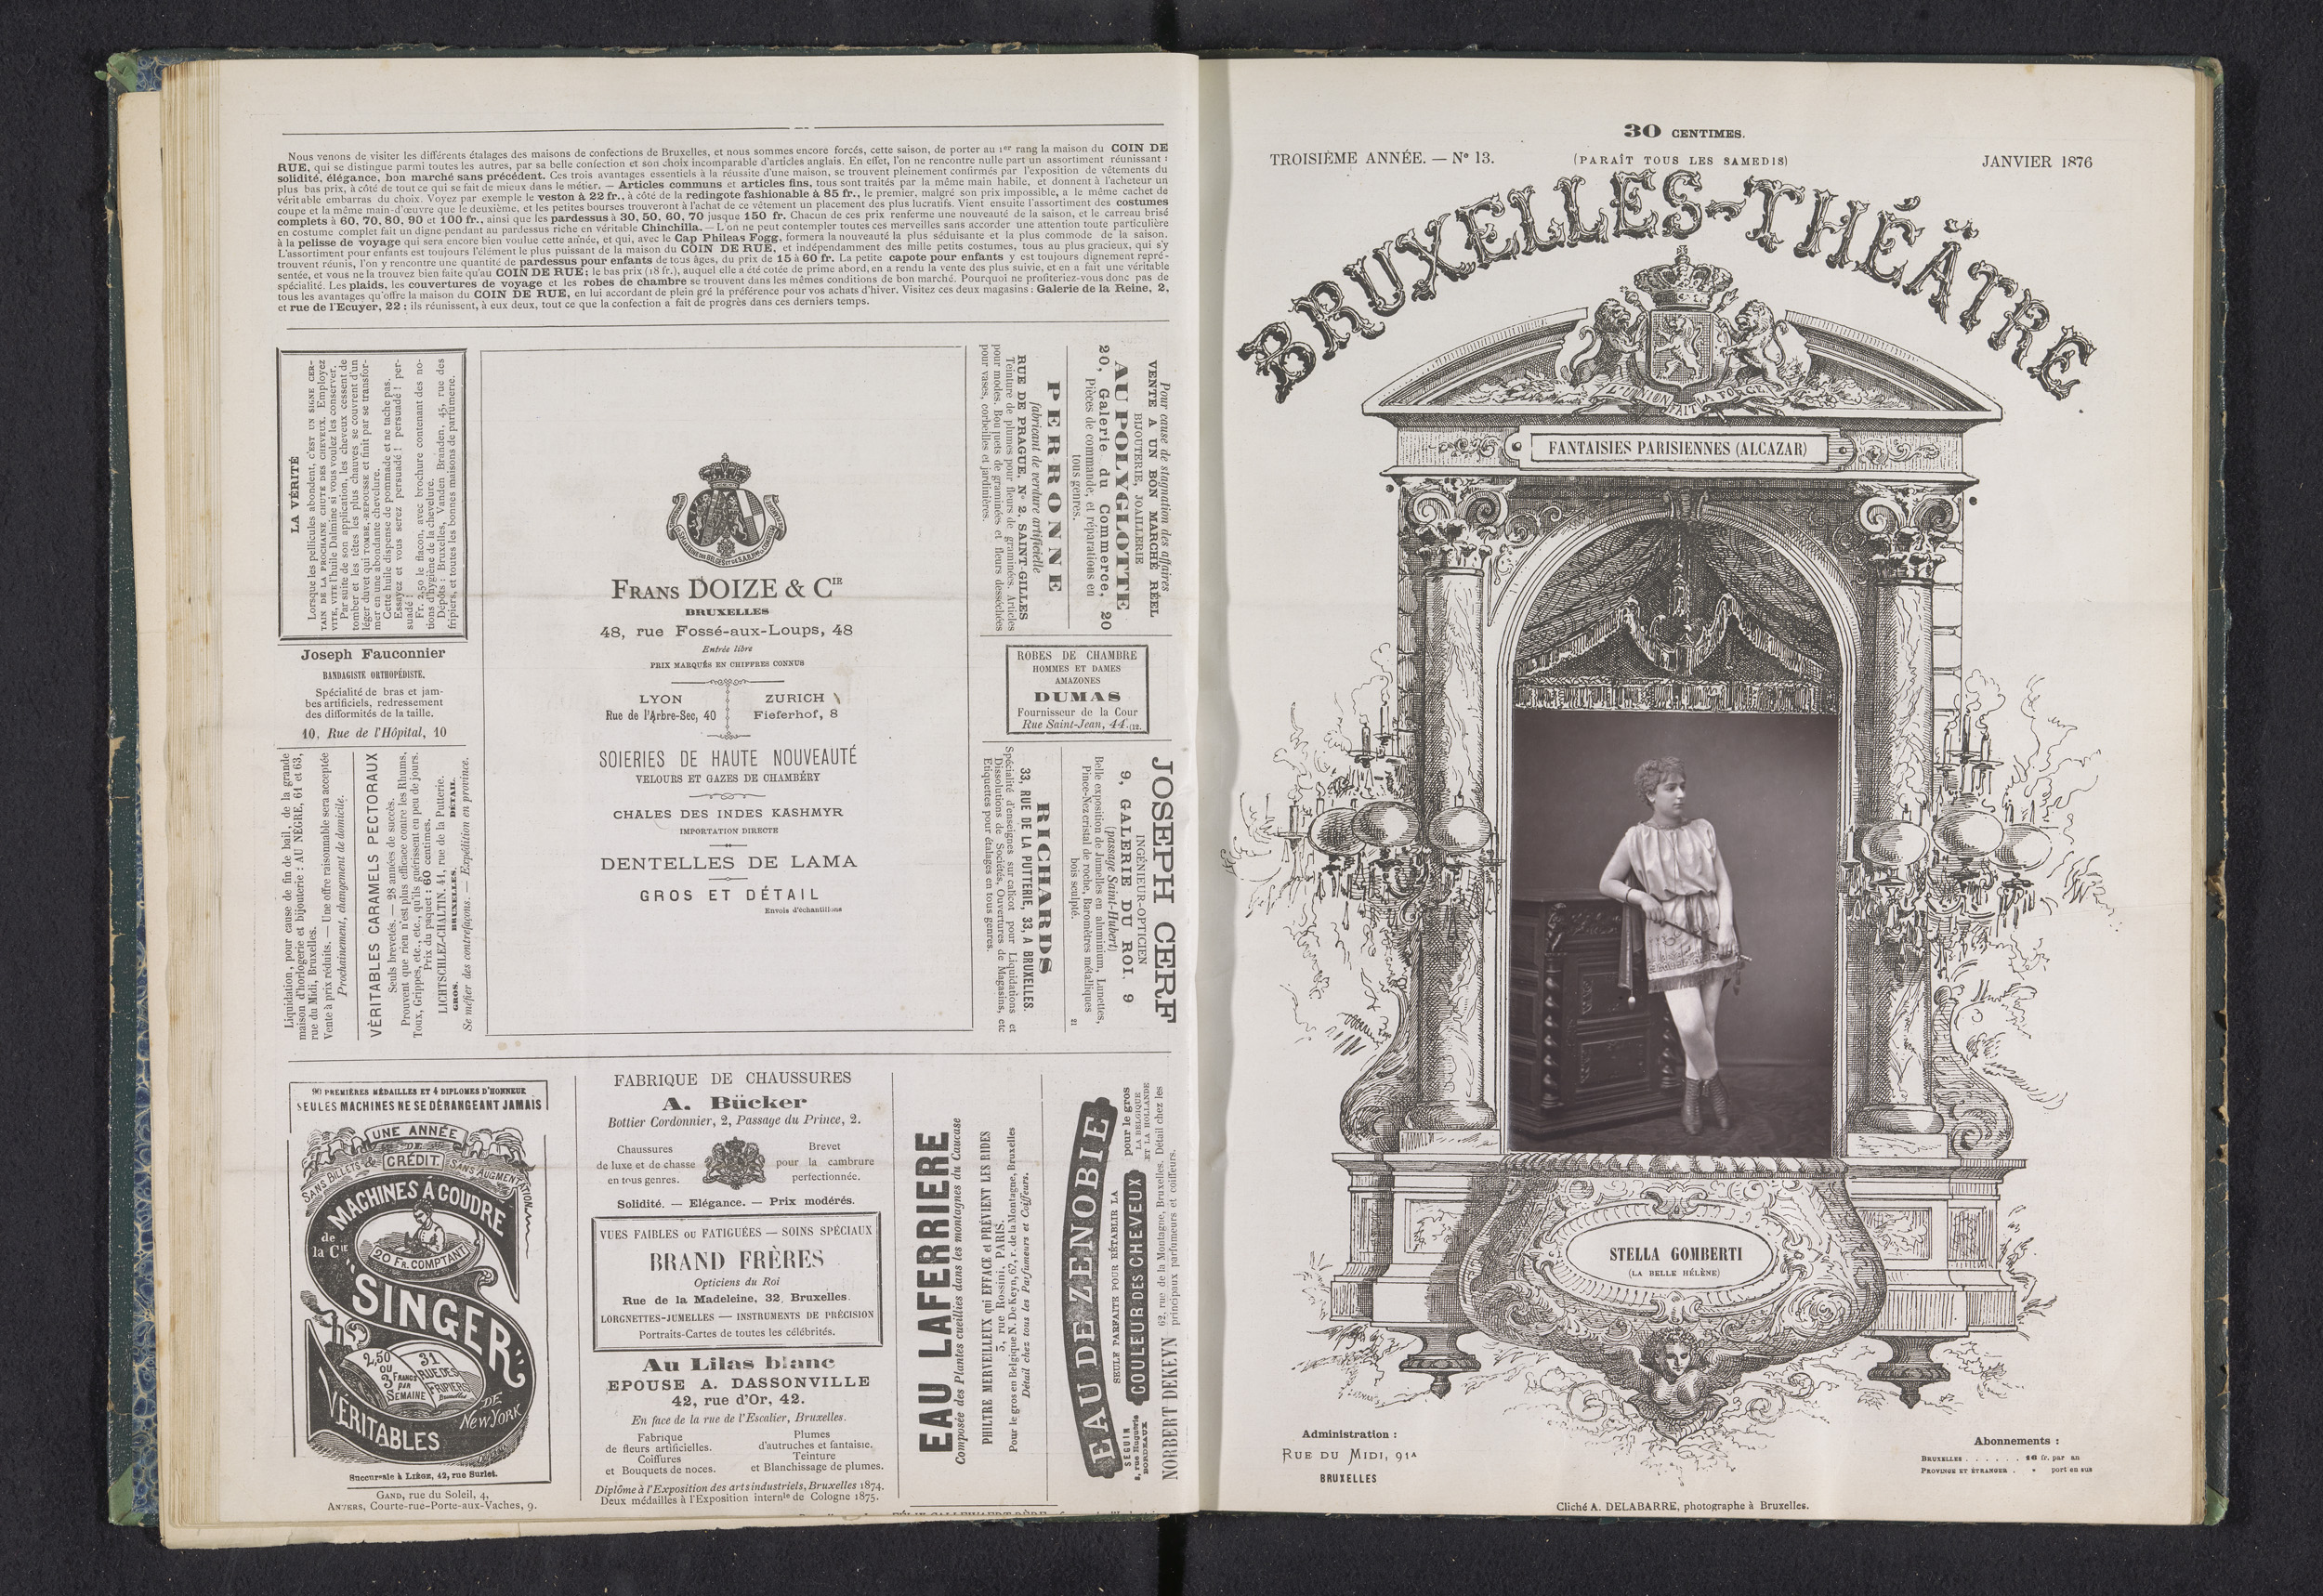 Nous venons de visiter les différents étalages des maisons de confections de Bruxelles, et nous sommes encore forcés, cette saison, de porter au 1er rang la maison du COIN DE
RUE, qui se distingue parmi toutes les autres, par sa belle confection et son choix incomparable d'articles anglais. En effet, l'on ne rencontre nulle part un assortiment réunissant :
solidité, élégance, bon marché sans précédent. Ces trois avantages essentiels à la réussite d'une maison, se trouvent pleinement confirmés par l'exposition de vêtements du
plus bas prix, à côté de tout ce qui se fait de mieux dans le métier. — Articles communs et articles fins, tous sont traités par la même main habile, et donnent à l'acheteur un
véritable embarras du choix. Voyez par exemple le veston à 22 fr., à côté de la redingote fashionable à 85 fr., le premier, malgré son prix impossible, a le même cachet de
coupe et la même main-d'œuvre que le deuxième, et les petites bourses trouveront à l'achat de ce vêtement un placement des plus lucratifs. Vient ensuite l'assortiment des costumes
complets à 60, 70, 80, 90 et 100 fr., ainsi que les pardessus à 30, 50, 60, 70 jusque 150 fr. Chacun de ces prix renferme une nouveauté de la saison, et le carreau brisé
en costume complet fait un digne pendant au pardessus riche en véritable Chinchilla. — L'on ne peut contempler toutes ces merveilles sans accorder une attention toute particulière
à la pelisse de voyage qui sera encore bien voulue cette année, et qui, avec le Cap Phileas Fogg, formera la nouveauté la plus séduisante et la plus commode de la saison.
L'assortiment pour enfants est toujours l'élément le plus puissant de la maison du COIN DE RUE, et indépendamment des mille petits costumes, tous au plus gracieux, qui s'y
trouvent réunis, l'on y rencontre une quantité de pardessus pour enfants de tous âges, du prix de 15 à 60 fr. La petite capote pour enfants y est toujours dignement repré-
sentée, et vous ne la trouvez bien faite qu'au COIN DE RUE; le bas prix (18 fr.), auquel elle a été cotée de prime abord, en a rendu la vente des plus suivie, et en a fait une véritable
spécialité. Les plaids, les couvertures de voyage et les robes de chambre se trouvent dans les mêmes conditions de bon marché. Pourquoi ne profiteriez-vous donc pas de
tous les avantages qu'offre la maison du COIN DE RUE, en lui accordant de plein gré la préférence pour vos achats d'hiver. Visitez ces deux magasins : Galerie de la Reine, 2,
et rue de l'Ecuyer, 22 : ils réunissent, à eux deux, tout ce que la confection a fait de progrès dans ces derniers temps.
LA VÉRITÉ
Lorsque les pellicules abondent, C'EST UN SIGNE CER-
TAIN DE LA PROCHAINE CHUTE DES CHEVEUX. Employez
VITE, VITE l'huile Dalmine si vous voulez les conserver.
Par suite de son application, les cheveux cessent de
tomber et les têtes les plus chauves se couvrent d'un
léger duvet qui TOMBE, REPOUSSE et finit par se transfor-
mer en une abondante chevelure.
Cette huile dispense de pommade et ne tache pas.
Essayez et vous serez persuadé ! persuadé ! per-
suadé !
Fr. 2,50 le flacon, avec brochure contenant des no-
tions d'hygiène de la chevelure.
Dépôts : Bruxelles, Vanden Branden, 45, rue des
fripiers, et toutes les bonnes maisons de parfumerie.
Joseph Fauconnier
BANDAGISTE ORTHOPÉDISTE.
Spécialité de bras et jam-
bes artificiels, redressement
des difformités de la taille.
10, Rue de l'Hôpital, 10
Liquidation, pour cause de fin de bail, de la grande
maison d'horlogerie et bijouterie : AU NÈGRE, 61 et 63,
rue du Midi, Bruxelles.
Vente à prix réduits. — Une offre raisonnable sera acceptée
Prochainement, changement de domicile.
VÉRITABLES CARAMELS PECTORAUX
Seuls brevetés. — 28 années de succès.
Prouvent que rien n'est plus efficace contre les Rhums,
Toux, Grippes, etc., etc., qu'ils guérissent en peu de jours.
Prix du paquet : 60 centimes.
LICHTSCHLEZ-CHALTIN, 41, rue de la Putterie.
GROS. BRUXELLES. DÉTAIL.
Se méfier des contrefaçons. — Expédition en province.
FRANS DOIZE & CIE
BRUXELLES
48, rue Fossé-aux-Loups, 48
Entrée libre
PRIX MARQUÉS EN CHIFFRES CONNUS
LYON
Rue de l'Arbre-Sec, 40
ZURICH
Fieferhof, 8
SOIERIES DE HAUTE NOUVEAUTÉ
VELOURS ET GAZES DE CHAMBÉRY
CHALES DES INDES KASHMYR
IMPORTATION DIRECTE
DENTELLES DE LAMA
GROS ET DÉTAIL
Envois d'échantillons
Pour cause de stagnation des affaires
VENTE A UN BON MARCHÉ RÉEL
BIJOUTERIE, JOAILLERIE
AU POLYGLOTTE
20, Galerie du Commerce, 20
Pièces de commande, et réparations en
tous genres.
PERRONNE
fabricant de verdure artificielle
RUE DE PRAGUE, No 2, SAINT-GILLES
Teinture de plumes pour fleurs de graminées. Articles
pour modes. Bouquets de graminées et fleurs desséchées
pour vases, corbeilles et jardinières.
ROBES DE CHAMBRE
HOMMES ET DAMES
AMAZONES
DUMAS
Fournisseur de la Cour
Rue Saint-Jean, 44. (12.
JOSEPH CERF
INGÉNIEUR-OPTICIEN
9, GALERIE DU ROI. 9
(passage Saint-Hubert)
Belle exposition de Jumelles en aluminium, Lunettes,
Pince-Nez cristal de roche, Baromètres métalliques
bois sculpté. 21
RICHARDS
33, RUE DE LA PUTTERIE, 33, A BRUXELLES.
Spécialité d'enseignes sur calicot pour Liquidations et
Dissolutions de Sociétés, Ouvertures de Magasins, etc
Etiquettes pour étalages en tous genres.
90 PREMIÈRES MÉDAILLES ET 4 DIPLOMES D'HONNEUR
SEULES MACHINES NE SE DÉRANGEANT JAMAIS
UNE ANNÉE
DE
CRÉDIT.
SANS BILLETS & SANS AUGMENTATION
MACHINES À COUDRE
de
la Cie
20 FR. COMPTANT
"SINGER"
2,50
OU
3 FRANCS
PAR
SEMAINE
31
RUE DES
FRIPIERS
Bruxelles
DE
NEW YORK
VÉRITABLES
Succursale à LIÈGE, 42, rue Surlet.
GAND, rue du Soleil, 4,
ANVERS, Courte-rue-Porte-aux-Vaches, 9.
FABRIQUE DE CHAUSSURES
A. Bücker
Bottier Cordonnier, 2, Passage du Prince, 2.
Chaussures
de luxe et de chasse
en tous genres.
Brevet
pour la cambrure
perfectionnée.
Solidité. — Elégance. — Prix modérés.
VUES FAIBLES OU FATIGUÉES — SOINS SPÉCIAUX
BRAND FRÈRES
Opticiens du Roi
Rue de la Madeleine, 32, Bruxelles.
LORGNETTES-JUMELLES — INSTRUMENTS DE PRÉCISION
Portraits-Cartes de toutes les célébrités.
Au Lilas blanc
EPOUSE A. DASSONVILLE
42, rue d'Or, 42.
En face de la rue de l'Escalier, Bruxelles.
Fabrique
de fleurs artificielles.
Coiffures
et Bouquets de noces.
Plumes
d'autruches et fantaisie.
Teinture
et Blanchissage de plumes.
Diplôme à l'Exposition des arts industriels, Bruxelles 1874.
Deux médailles à l'Exposition internle de Cologne 1875.
EAU LAFERRIERE
Composée des Plantes cueillies dans les montagnes du Caucase
PHILTRE MERVEILLEUX qui EFFACE et PRÉVIENT LES RIDES
5, rue Rossini, PARIS.
Pour le gros en Belgique N. De Keyn, 62, r. de la Montagne, Bruxelles
Détail chez tous les Parfumeurs et Coiffeurs.
EAU DE ZÉNOBIE
SEULE PARFAITE POUR RÉTABLIR LA
COULEUR DES CHEVEUX
SEGUIN
3, rue Huguerie
BORDEAUX
pour le gros
LA BELGIQUE
ET LA HOLLANDE
NORBERT DEKEYN 62, rue de la Montagne, Bruxelles. Détail chez les
principaux parfumeurs et coiffeurs.
30 CENTIMES.
TROISIÈME ANNÉE. — No 13.
(PARAÎT TOUS LES SAMEDIS)
JANVIER 1876
BRUXELLES-THÉÂTRE
L'UNION FAIT LA FORCE
FANTAISIES PARISIENNES (ALCAZAR)
STELLA GOMBERTI
(LA BELLE HÉLÈNE)
Administration :
RUE DU MIDI, 91A
BRUXELLES
Abonnements :
BRUXELLES . . . . . . . 16 fr. par an
PROVINCE ET ÉTRANGER . » port en sus
Cliché A. DELABARRE, photographe à Bruxelles.